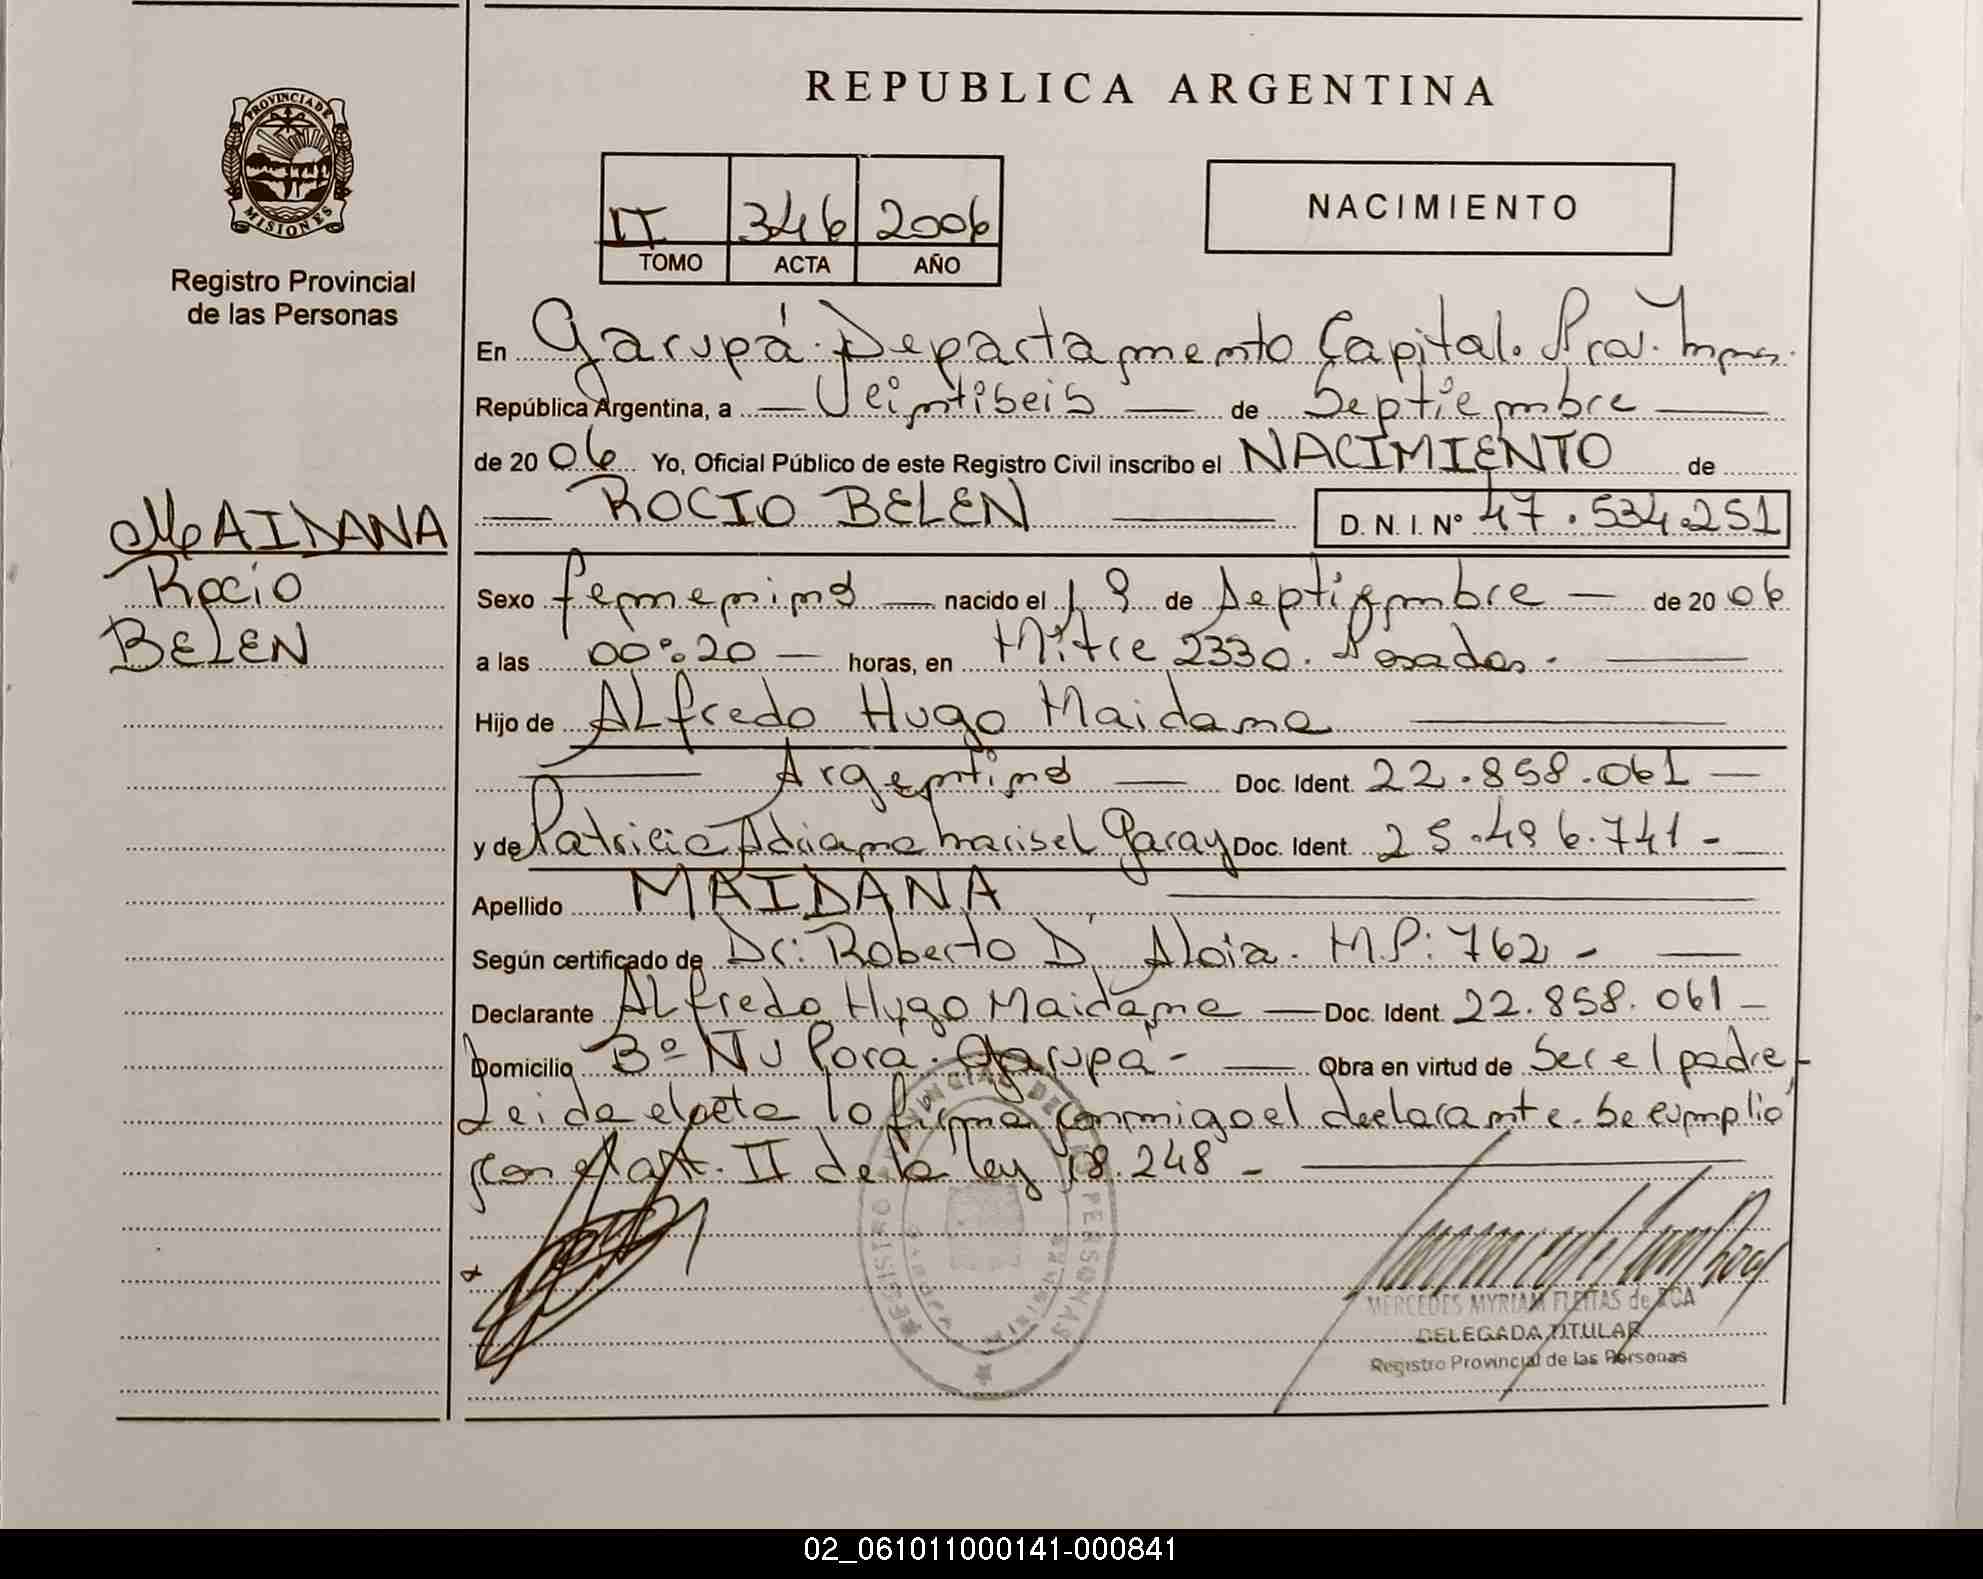 REPUBLICA ARGENTINA
PROVINCIA DE
MISIONES
Registro Provincial
de las Personas
II 346 2006
TOMO ACTA AÑO
NACIMIENTO
En Garupá. Departamento Capital. Prov. Mnes.
República Argentina, a — Veintiseis — de Septiembre —
de 20 06 Yo, Oficial Público de este Registro Civil inscribo el NACIMIENTO de
— ROCIO BELEN — D. N. I. Nº 47.534.251
MAIDANA
Rocio
BELEN
Sexo femenino — nacido el 19 de Septiembre — de 20 06
a las 00:20 — horas, en Mitre 2330. Posadas. —
Hijo de Alfredo Hugo Maidana —
— Argentino — Doc. Ident. 22.858.061 —
y de Patricia Adriana Marisel Garay Doc. Ident. 25.496.741 -
Apellido MAIDANA —
Según certificado de Dr: Roberto D' Aloia. M.P: 762 - —
Declarante Alfredo Hugo Maidana — Doc. Ident. 22.858.061 —
Domicilio Bº Ñu Porá. Garupá - — Obra en virtud de Ser el padre -
Leida el acta lo firma conmigo el declarante. Se cumplio
con el art. II de la ley 18.248 - —
REGISTRO PROVINCIAL DE LAS PERSONAS
MERCEDES MYRIAM FLEITAS de ROA
DELEGADA TITULAR
Registro Provincial de las Personas
02_061011000141-000841